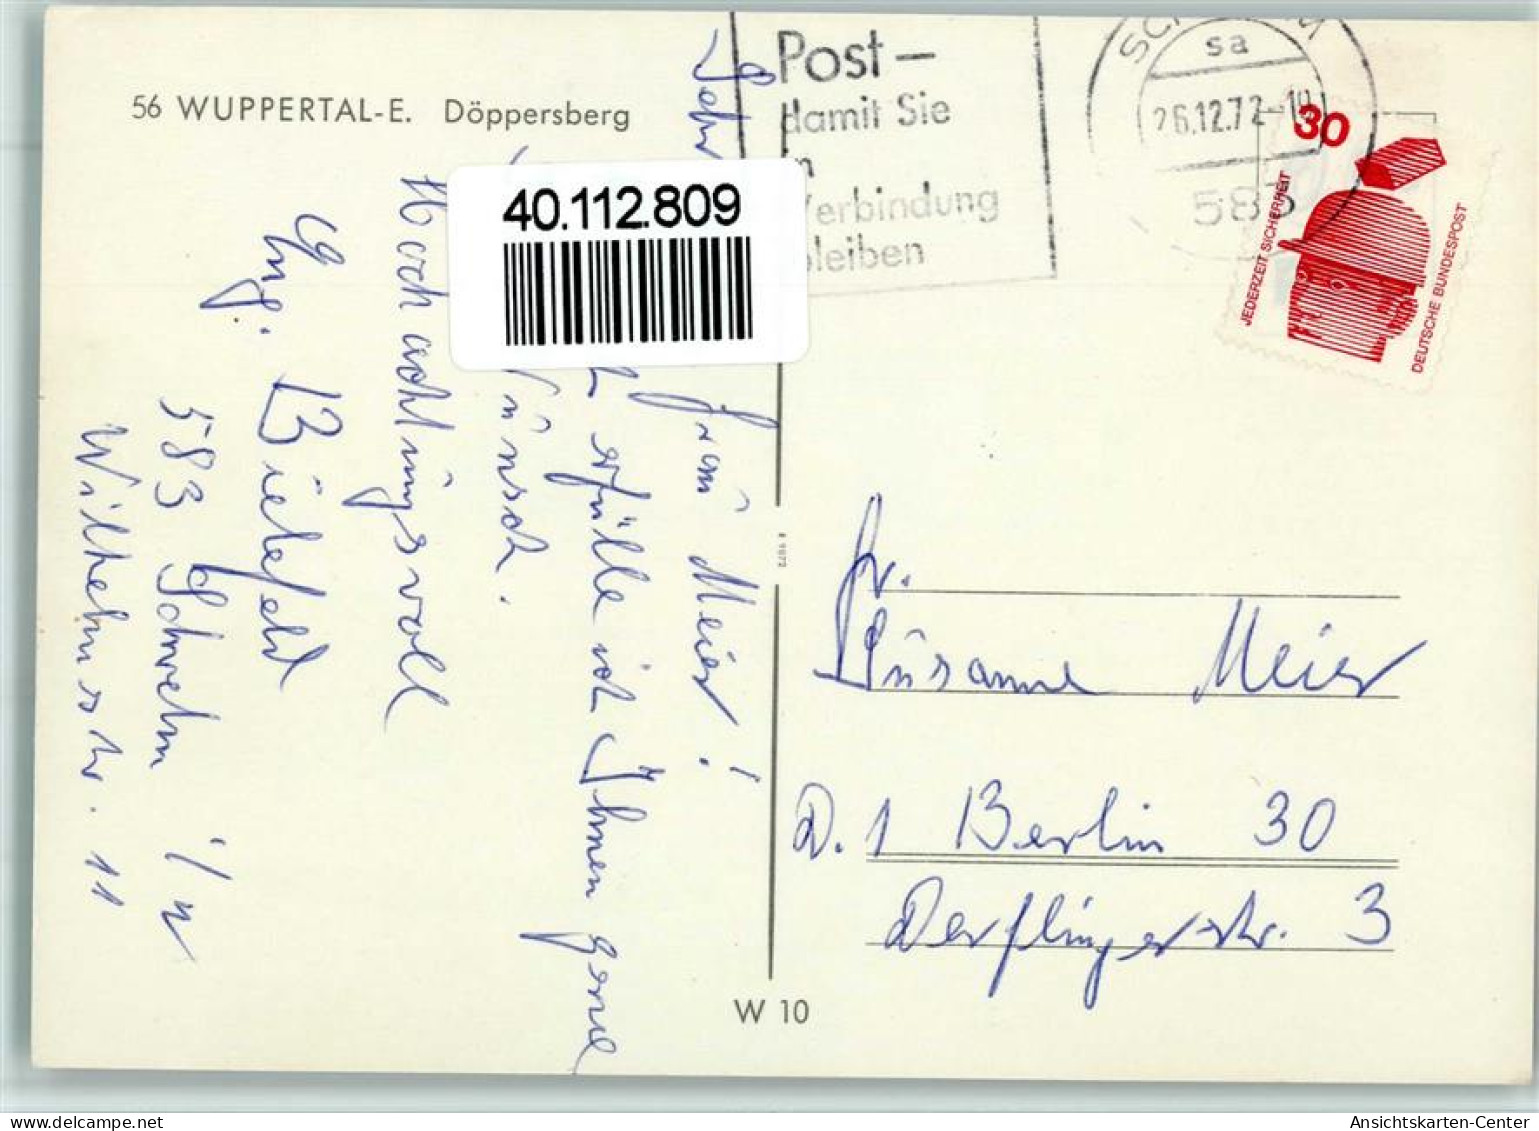 56 WUPPERTAL-E. Döppersberg
Post –
damit Sie
in
Verbindung
bleiben
sa
26.12.72-19
583
30
JEDERZEIT SICHERHEIT
DEUTSCHE BUNDESPOST
40.112.809
Sehr
Frau Meier!
erfülle ich Ihnen gerne
Wunsch.
Hochachtungsvoll
Bielefeld
583 Schwelm i/W
Wilhelmstr. 11
Fr.
Susanne Meier
D. 1 Berlin 30
Derflingerstr. 3
W 10
delcampe.net
tk2012
Ansichtskarten-Center